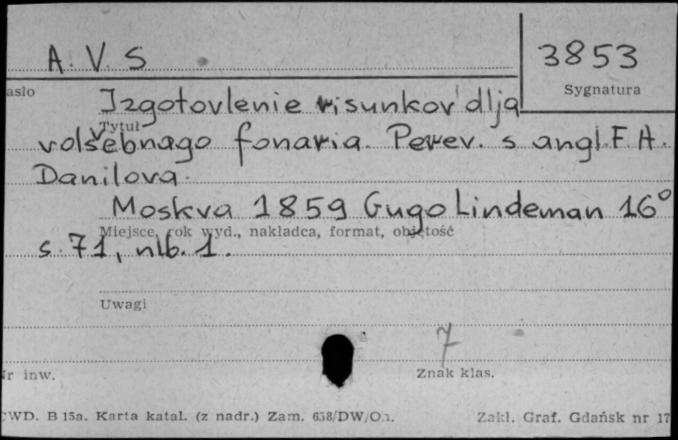 A. V. S
3853
asło
Sygnatura
Izgotovlenie risunkov dlja
Tytuł
volšebnago fonaria. Perev. s angl. F. A.
Danilova.
Moskva 1859 Gugo Lindeman 16°
Miejsce, rok wyd., nakładca, format, objętość
s. 71, nlb. 1.
Uwagi
7
nr inw.
Znak klas.
CWD. B 15a. Karta katal. (z nadr.) Zam. 638/DW/On.
Zakł. Graf. Gdańsk nr 17